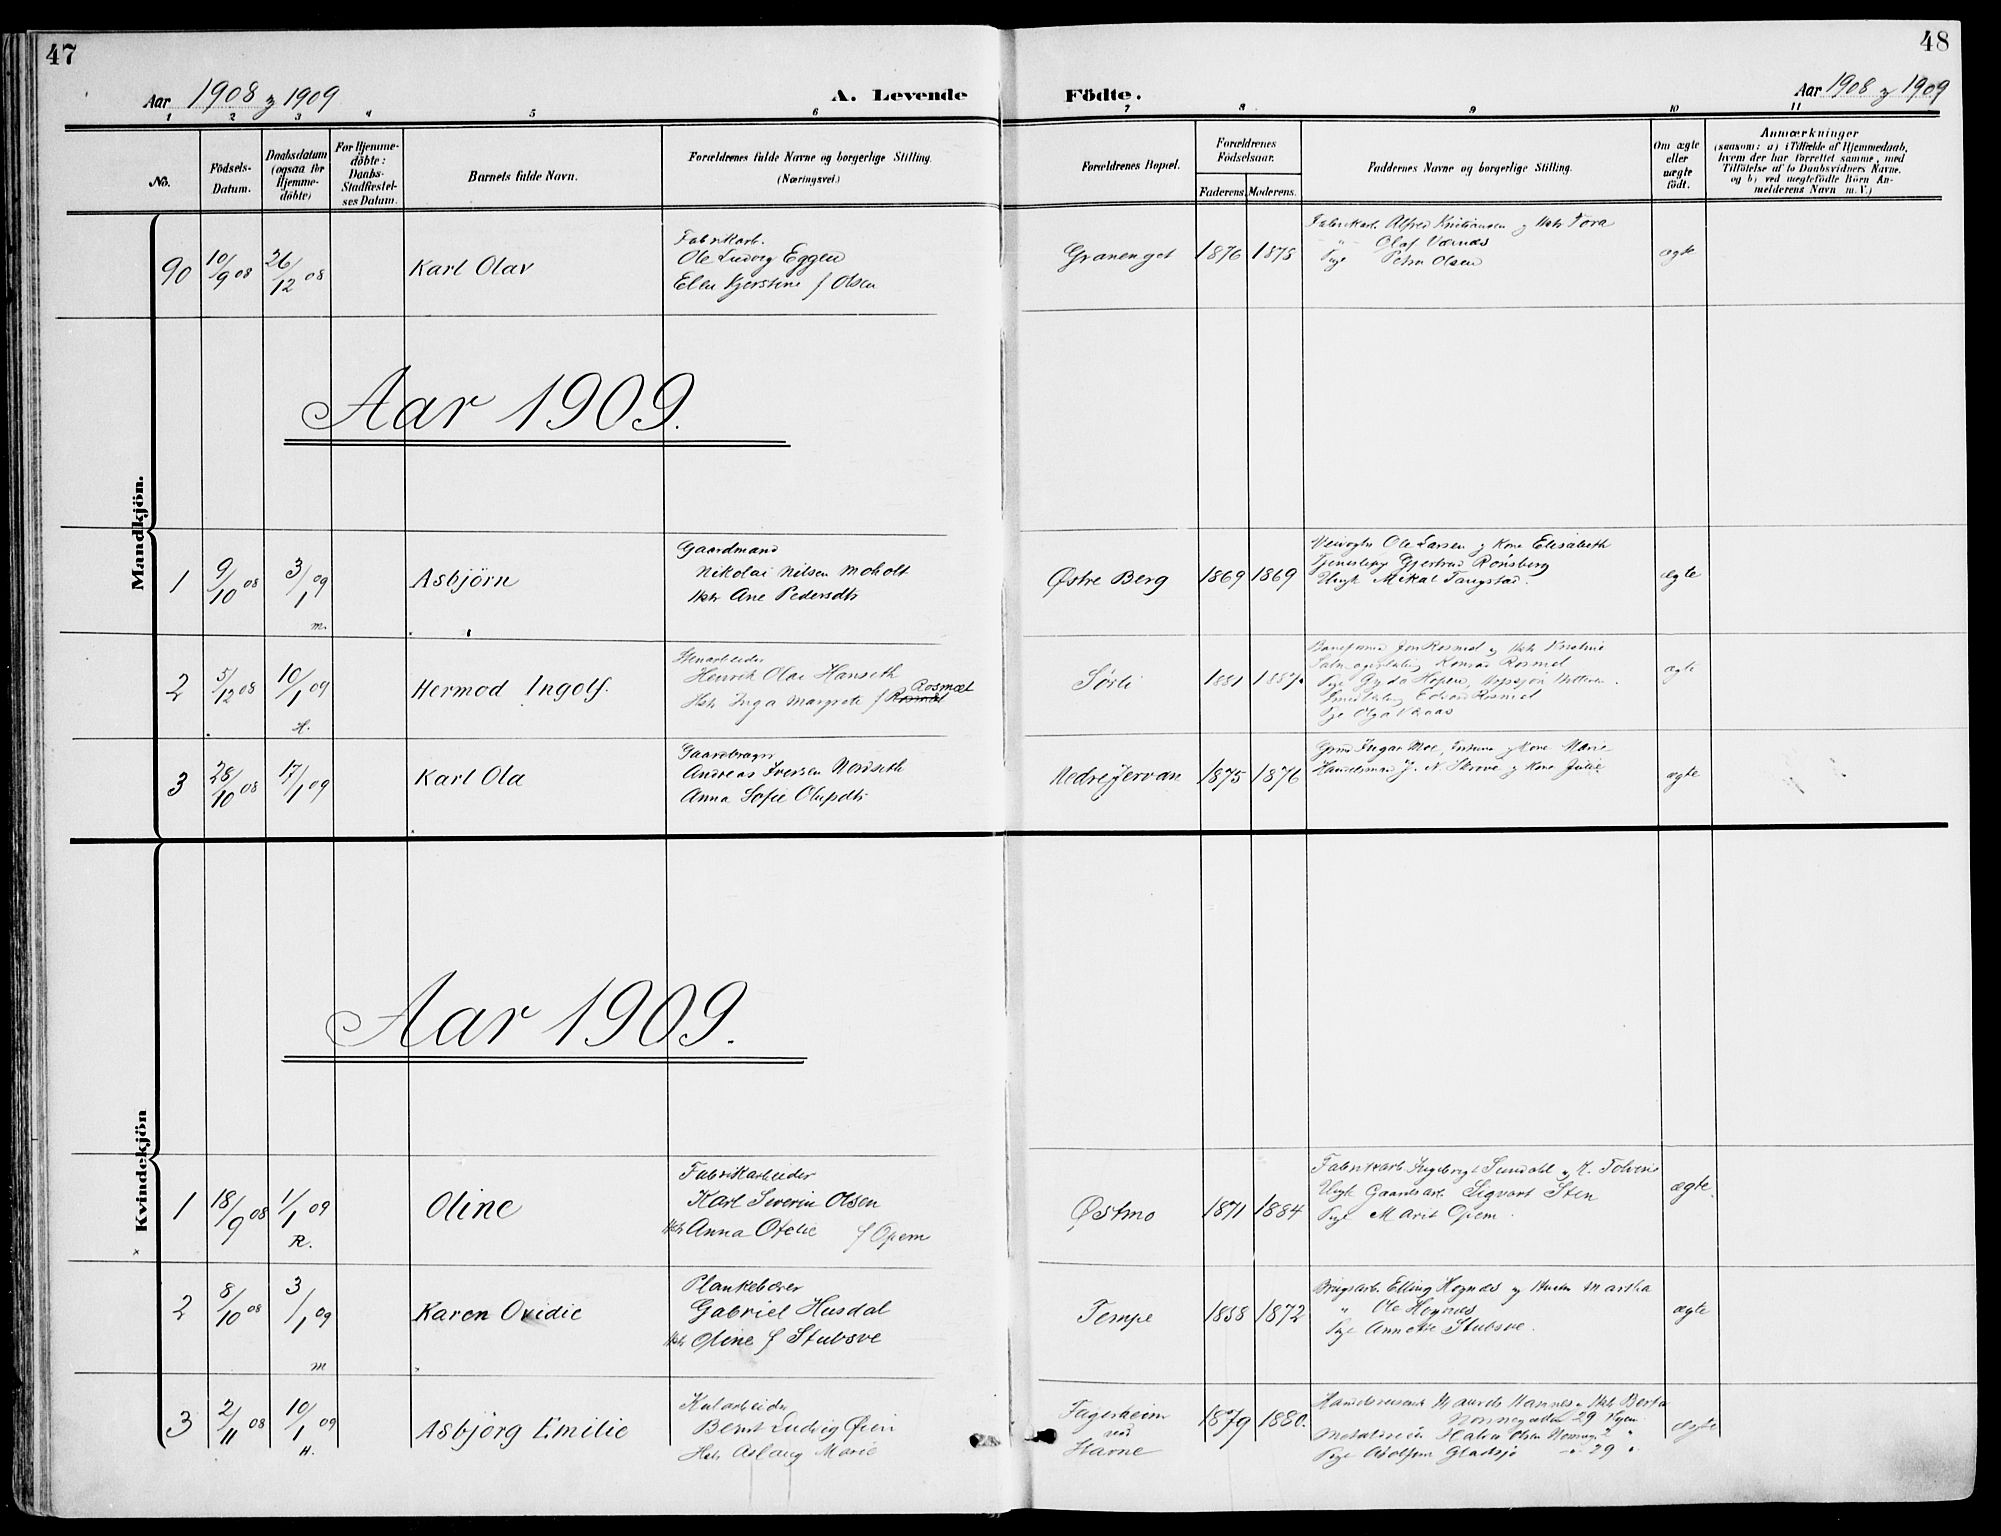 47
48
Aar 1908 og 1909
A. Levende
Födte.
Aar 1908 og 1909
1 2 3 4 5 6 7 8 9 10 11
No.
Födsels-
Datum.
Daabsdatum
(ogsaa for
Hjemme-
döbte)
For Hjemme-
döbte:
Daabs-
Stadfæstel-
ses Datum.
Barnets fulde Navn.
Forældrenes fulde Navne og borgerlige Stilling.
(Næringsvei.)
Forældrenes Bopæl.
Forældrenes
Födselsaar.
Faderens. Moderens.
Faddernes Navne og borgerlige Stilling.
Om ægte
eller
uægte
født.
Anmærkninger
(saasom: a) i Tilfælde af Hjemmedaab,
hvem der har forrettet samme, med
Tilföielse af to Daabsvidners Navne.
og b) ved uægtefödte Börn An-
melderens Navn m. V.)
Mandkjön.
90
10/9 08
26/12 08
Karl Olav
Fabrikarb.
Ole Ludvig Eggen
Ellen Kjerstine f Olsen
Granenget
1876
1878
Fabrikarb. Alfred Kristiansen og Hstr Tora
" Olaf Værnes
Pige Petra Olsen
ægte
Aar 1909.
1
9/10 08
3/1 09
m.
Asbjörn
Gaardmand
Nikolai Nilsen Moholt
Hstr Ane Pedersdtr
Østre Berg
1869
1869
Ole Larsen og Kone Elisabeth
Gjertrud Rönsberg
Ungk. Mikal Tangstad.
ægte
2
5/12 08
10/1 09
H.
Hermod Ingolf.
Stenarbeider
Henrik Olai Hanseth
Hstr Inga Margrete f Rosmæl
Sørli
1881
Jon Rosmel og Hstr Kristine
Konrad Rosmel
Pige Gyda Hopen,
Edvard Rosmel
Pige Olga
ægte
3
28/10 08
17/1 09
Karl Ola
Gaardbruger
Andreas Iversen Nordseth
Anna Sofie Olufsdtr
Nedre Jervan
1875
1876
Ingar Moe, og Kone Marie
Handelsmand J. N. Skrove og Kone Julie
ægte
Kvindekjön
Aar 1909.
1
18/9 08
1/1 09
R.
Oline
Fabrikarbeider
Karl Severin Olsen
Hstr Anna Otelie f Opem
Østmo
1871
1884
Fabrikarb. Ingebrigt Sundahl og K.
Ungk Gaardsarb Sigvart Sten
Pige Marit Opem.
ægte.
2
8/10 08
3/1 09
m
Karen Ovidie
Plankebærer
Gabriel Husdal
Hstr Oline f Stubsve
Tempe
1858
1872
Brugsarb. Elling Hognæs og Hustru Martha
" Ole Hognæs
Pige Annette Stubsve.
ægte
3
2/11 08
10/1 09
H.
Asbjörg Emilie
Kularbeider
Bernt Ludvig Øien
Hstr Aslaug Marie
Fagerheim
ved
Stavne
1879
1880.
Hannes og Hstr Berta
29
Pige Gladsjø 29 "
ægte